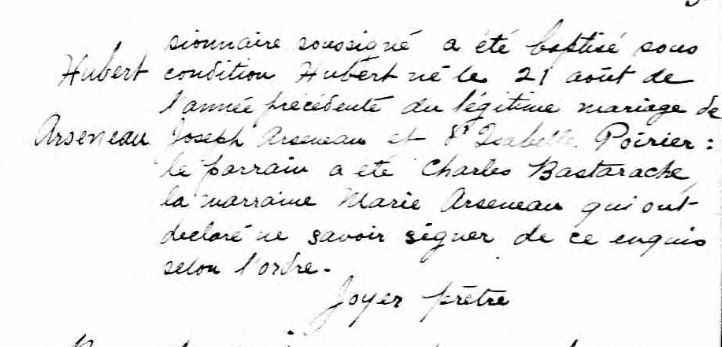 sionnaire soussigné a été baptisé sous
Hubert condition Hubert né le 21 août de
l'année précédente du légitime mariage de
Arseneau Joseph Arseneau et d'Isabelle Poirier :
le parrain a été Charles Bastarache,
la marraine Marie Arseneau qui ont
declaré ne savoir signer de ce enquis
selon l'ordre.
Joyer prêtre